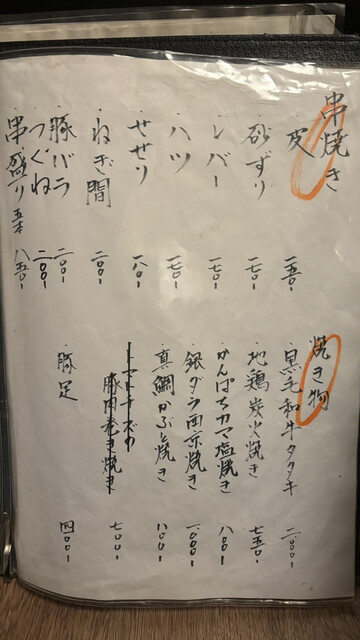 串焼き
・皮 一五〇-
・砂ずり 一七〇-
・レバー 一七〇-
・ハツ 一七〇-
・せせり 一八〇-
・ねぎ間 二〇〇-
・豚バラ 二〇〇-
・つくね 二〇〇-
・串盛り 五本 八五〇-
焼き物
・黒毛和牛タタキ 二、〇〇〇-
・地鶏炭火焼き 七五〇-
・かんぱちカマ塩焼き 八〇〇-
・銀ダラ西京焼き 一、〇〇〇-
・真鯛かぶと焼き 八〇〇-
・トマトチーズの
豚肉巻き焼き 七〇〇-
・豚足 四〇〇-